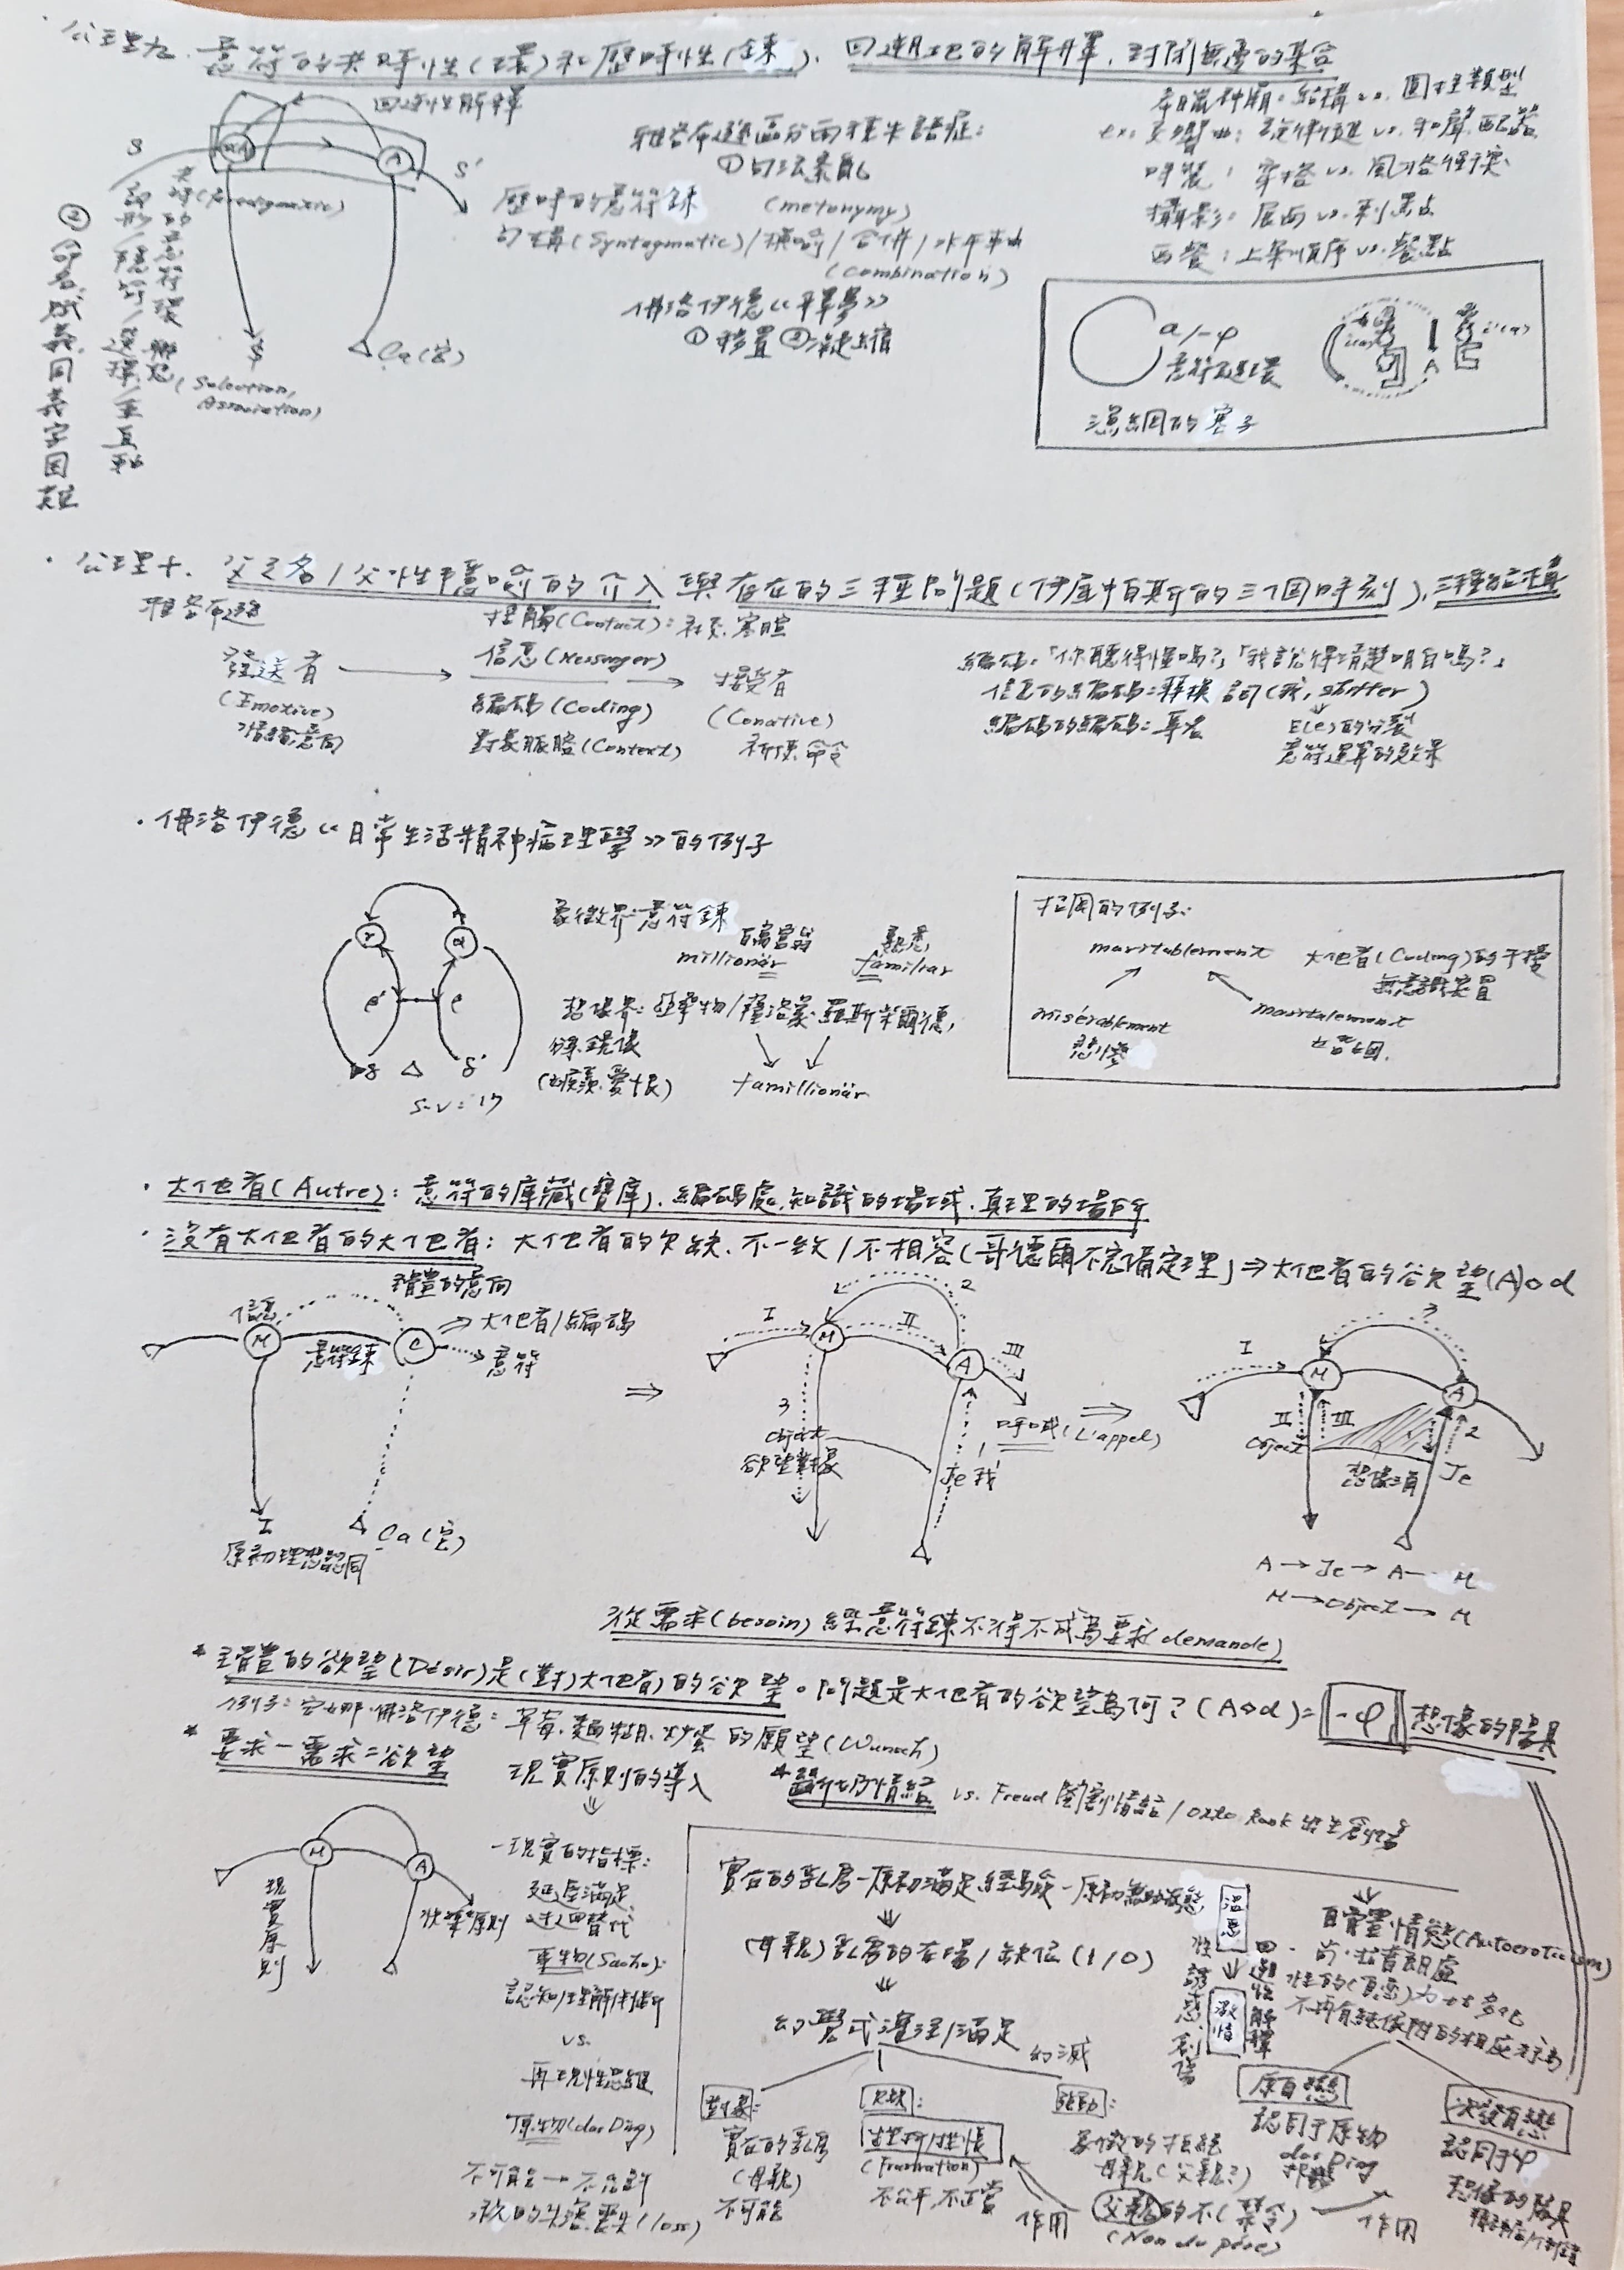 公理九. 意符的共時性(環)和歷時性(鍊)、回溯地的解釋,封閉無邊的集合
回溯性解釋
S
S'
A
(Paradigmatic)
共時的意符環 聯想
(Selection, Association)
$
△ Ça (它)
雅各布遜區分兩種失語症:
①句法紊亂
(metonymy)
歷時的意符鍊
(Syntagmatic)/換喻/合併/水平軸
(combination)
佛洛伊德《釋夢》
①移置 ②凝縮
②命名賦義、同義字困難
結構 vs. 圓柱類型
ex. 交響曲: 旋律行進 vs. 和聲配器
時裝: 穿搭 vs. 風格
攝影: 展面 vs. 刺點
西餐: 上菜順序 vs. 餐點
a/-φ
A
i'(a)
漁網的塞子
公理十. 父之名/父性隱喻的介入與存在的三種問題(伊底帕斯的三個時刻),三種結構
雅各布遜
接觸(Contact): 社交、寒暄
發送者
(Emotive)
情緒意向
信息(Messenger)
編碼(Coding)
對象脈胳(Context)
接受者
(Conative)
祈使、命令
編碼:「你聽得懂嗎?」「我說得清楚明白嗎?」
信息的編碼: 轉換詞(我, shifter)
編碼的編碼: 專名
E(e)的分裂
意符運算的效果
佛洛伊德《日常生活精神病理學》的例子
γ
α
e'
e
δ △ δ'
象徵界: 意符鍊
百萬富翁
millionär
親悉
familiar
羅斯柴爾德,
famillionär
拉岡的例子:
maritablement
misérablement
悲慘
大他者(Coding)的干擾
無意識裝置
大他者(Autre): 意符的庫藏(寶庫)、編碼處、知識的場域、真理的場所
沒有大他者的大他者: 大他者的欠缺、不一致/不相容(哥德爾不完備定理)⇒大他者的欲望(A)◇d
主體的意向
信息
M
C
⇒大他者/編碼
意符
意符鍊
I
原初理想認同
△ Ça (它)
⇒
I
M
II
2
A
III
3
object
欲望對象
呼喊(L'appel)
1
Je 我
⇒
I
M
3
A
II
III
object
想像項
2
Je
A→Je→A—M
M→object→M
從需求(besoin)經意符鍊不得不成為要求(demande)
* 主體的欲望(Désir)是(對)大他者的欲望。問題是大他者的欲望為何?(A◇d)=-φ 想像的陽具
例子: 安娜·佛洛伊德: 草莓、麵糊、炒蛋的願望(Wunsch)
* 要求-需求=欲望
現實原則的導入
* 斷奶情結 vs. Freud 閹割情結/Otto Rank 出生創傷
M
A
現實原則
快樂原則
現實的指標:
延遲滿足
迂迴替代
事物(Sache):
認知/理解/判斷
vs.
再現性思維
原物(das Ding)
不可能→不
永恆的失落、喪失(loss)
實在的乳房—原初滿足經驗—原初無助狀態
(母親)乳房的在場/缺位(1/0)
幻覺式滿足
幻滅
對象:
實在的乳房
(母親)
不可能
欠缺:
挫折/挫悵
(Frustration)
不公平,不正當
驅動:
象徵的拒絕
母親(父親?)
父親的不(禁令)
(Non du père)
作用
溫馨
激情
性誘惑創傷
回溯性解釋
自體情慾(Autoeroticism)
原自戀
認同于原物
das Ding
次發自戀
認同于φ
想像的陽具
作用